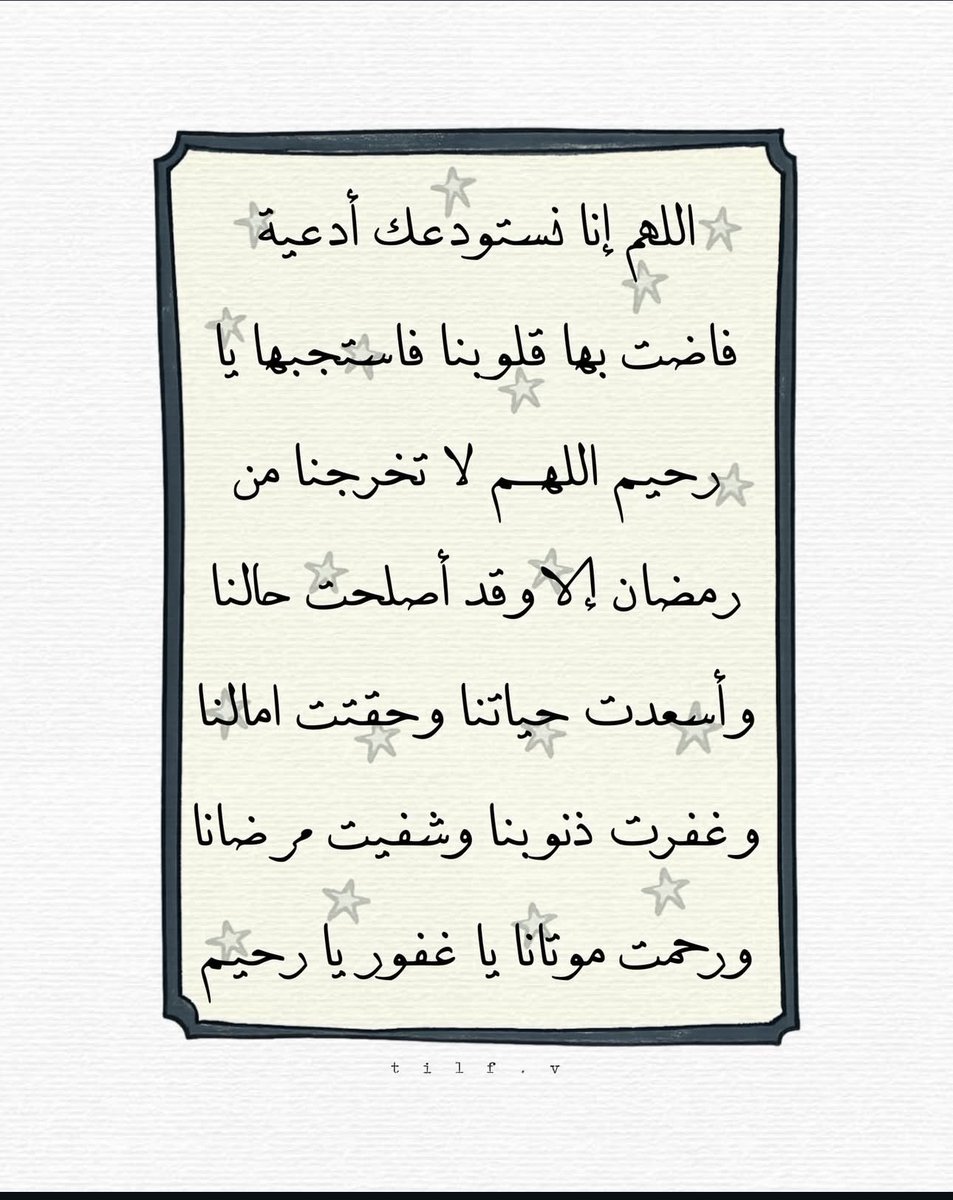 اللهم إنا نستودعك أدعية
فاضت بها قلوبنا فاستجبها يا
رحيم اللهـم لا تخرجنا من
رمضان إلا وقد أصلحت حالنا
وأسعدت حياتنا وحققت امالنا
وغفرت ذنوبنا وشفيت مرضانا
ورحمت موتانا يا غفور يا رحيم
tilf.v